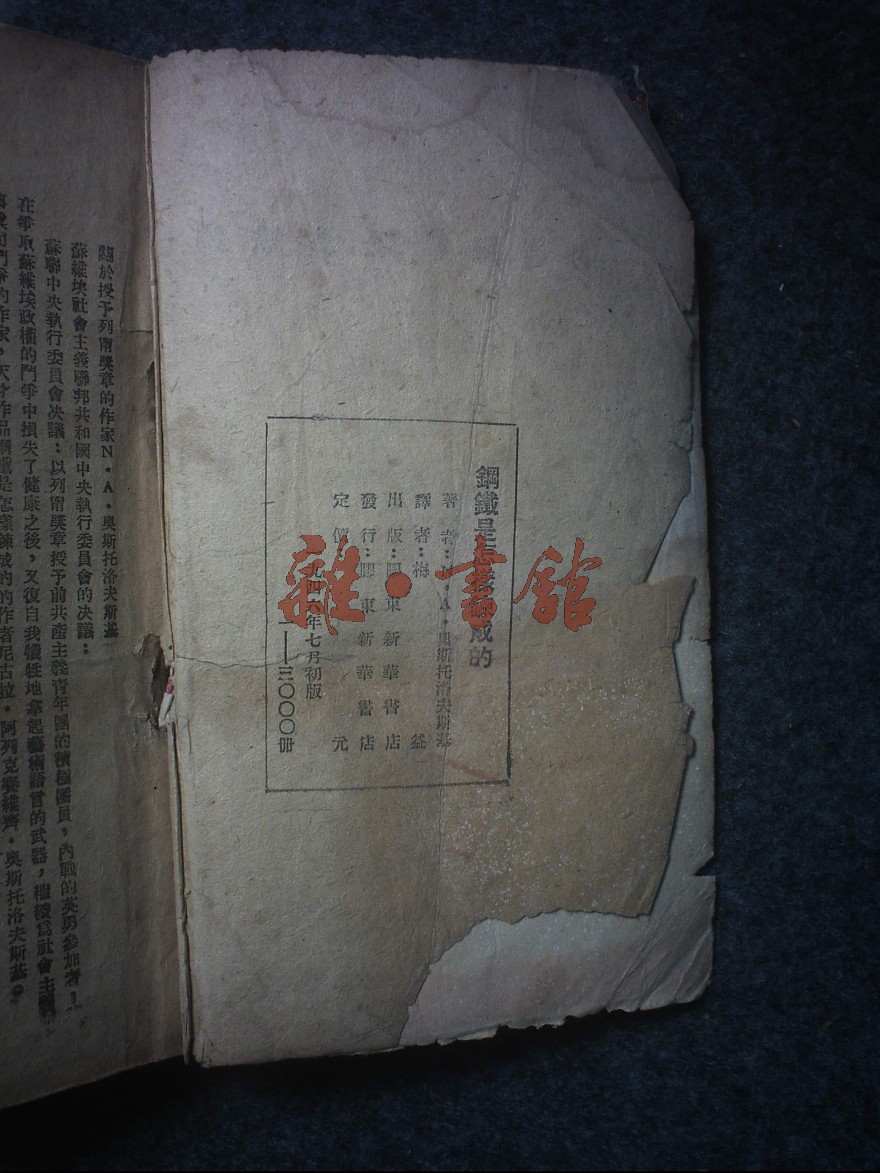 鋼鐵是怎樣煉成的
著者：N．A．奧斯托洛夫斯基
譯者：梅益
出版：膠東新華書店
發行：膠東新華書店
定價 元
一九四六年七月初版
一——三〇〇〇冊
關於授予列甯獎章的作家N．A．奧斯托洛夫斯基
蘇維埃社會主義聯邦共和國中央執行委員會的決議：
蘇聯中央執行委員會決議：以列甯獎章授予前共產主義青年團的積極團員，內戰的英勇參加者，
在爭取蘇維埃政權的鬥爭中損失了健康之後，又復自我犧牲地拿起藝術語言的武器，繼續爲社會主義
鬥爭的作家，天才作品鋼鐵是怎樣鍊成的的作者尼古拉．阿列克賽維齊．奧斯托洛夫斯基。
雜·書館